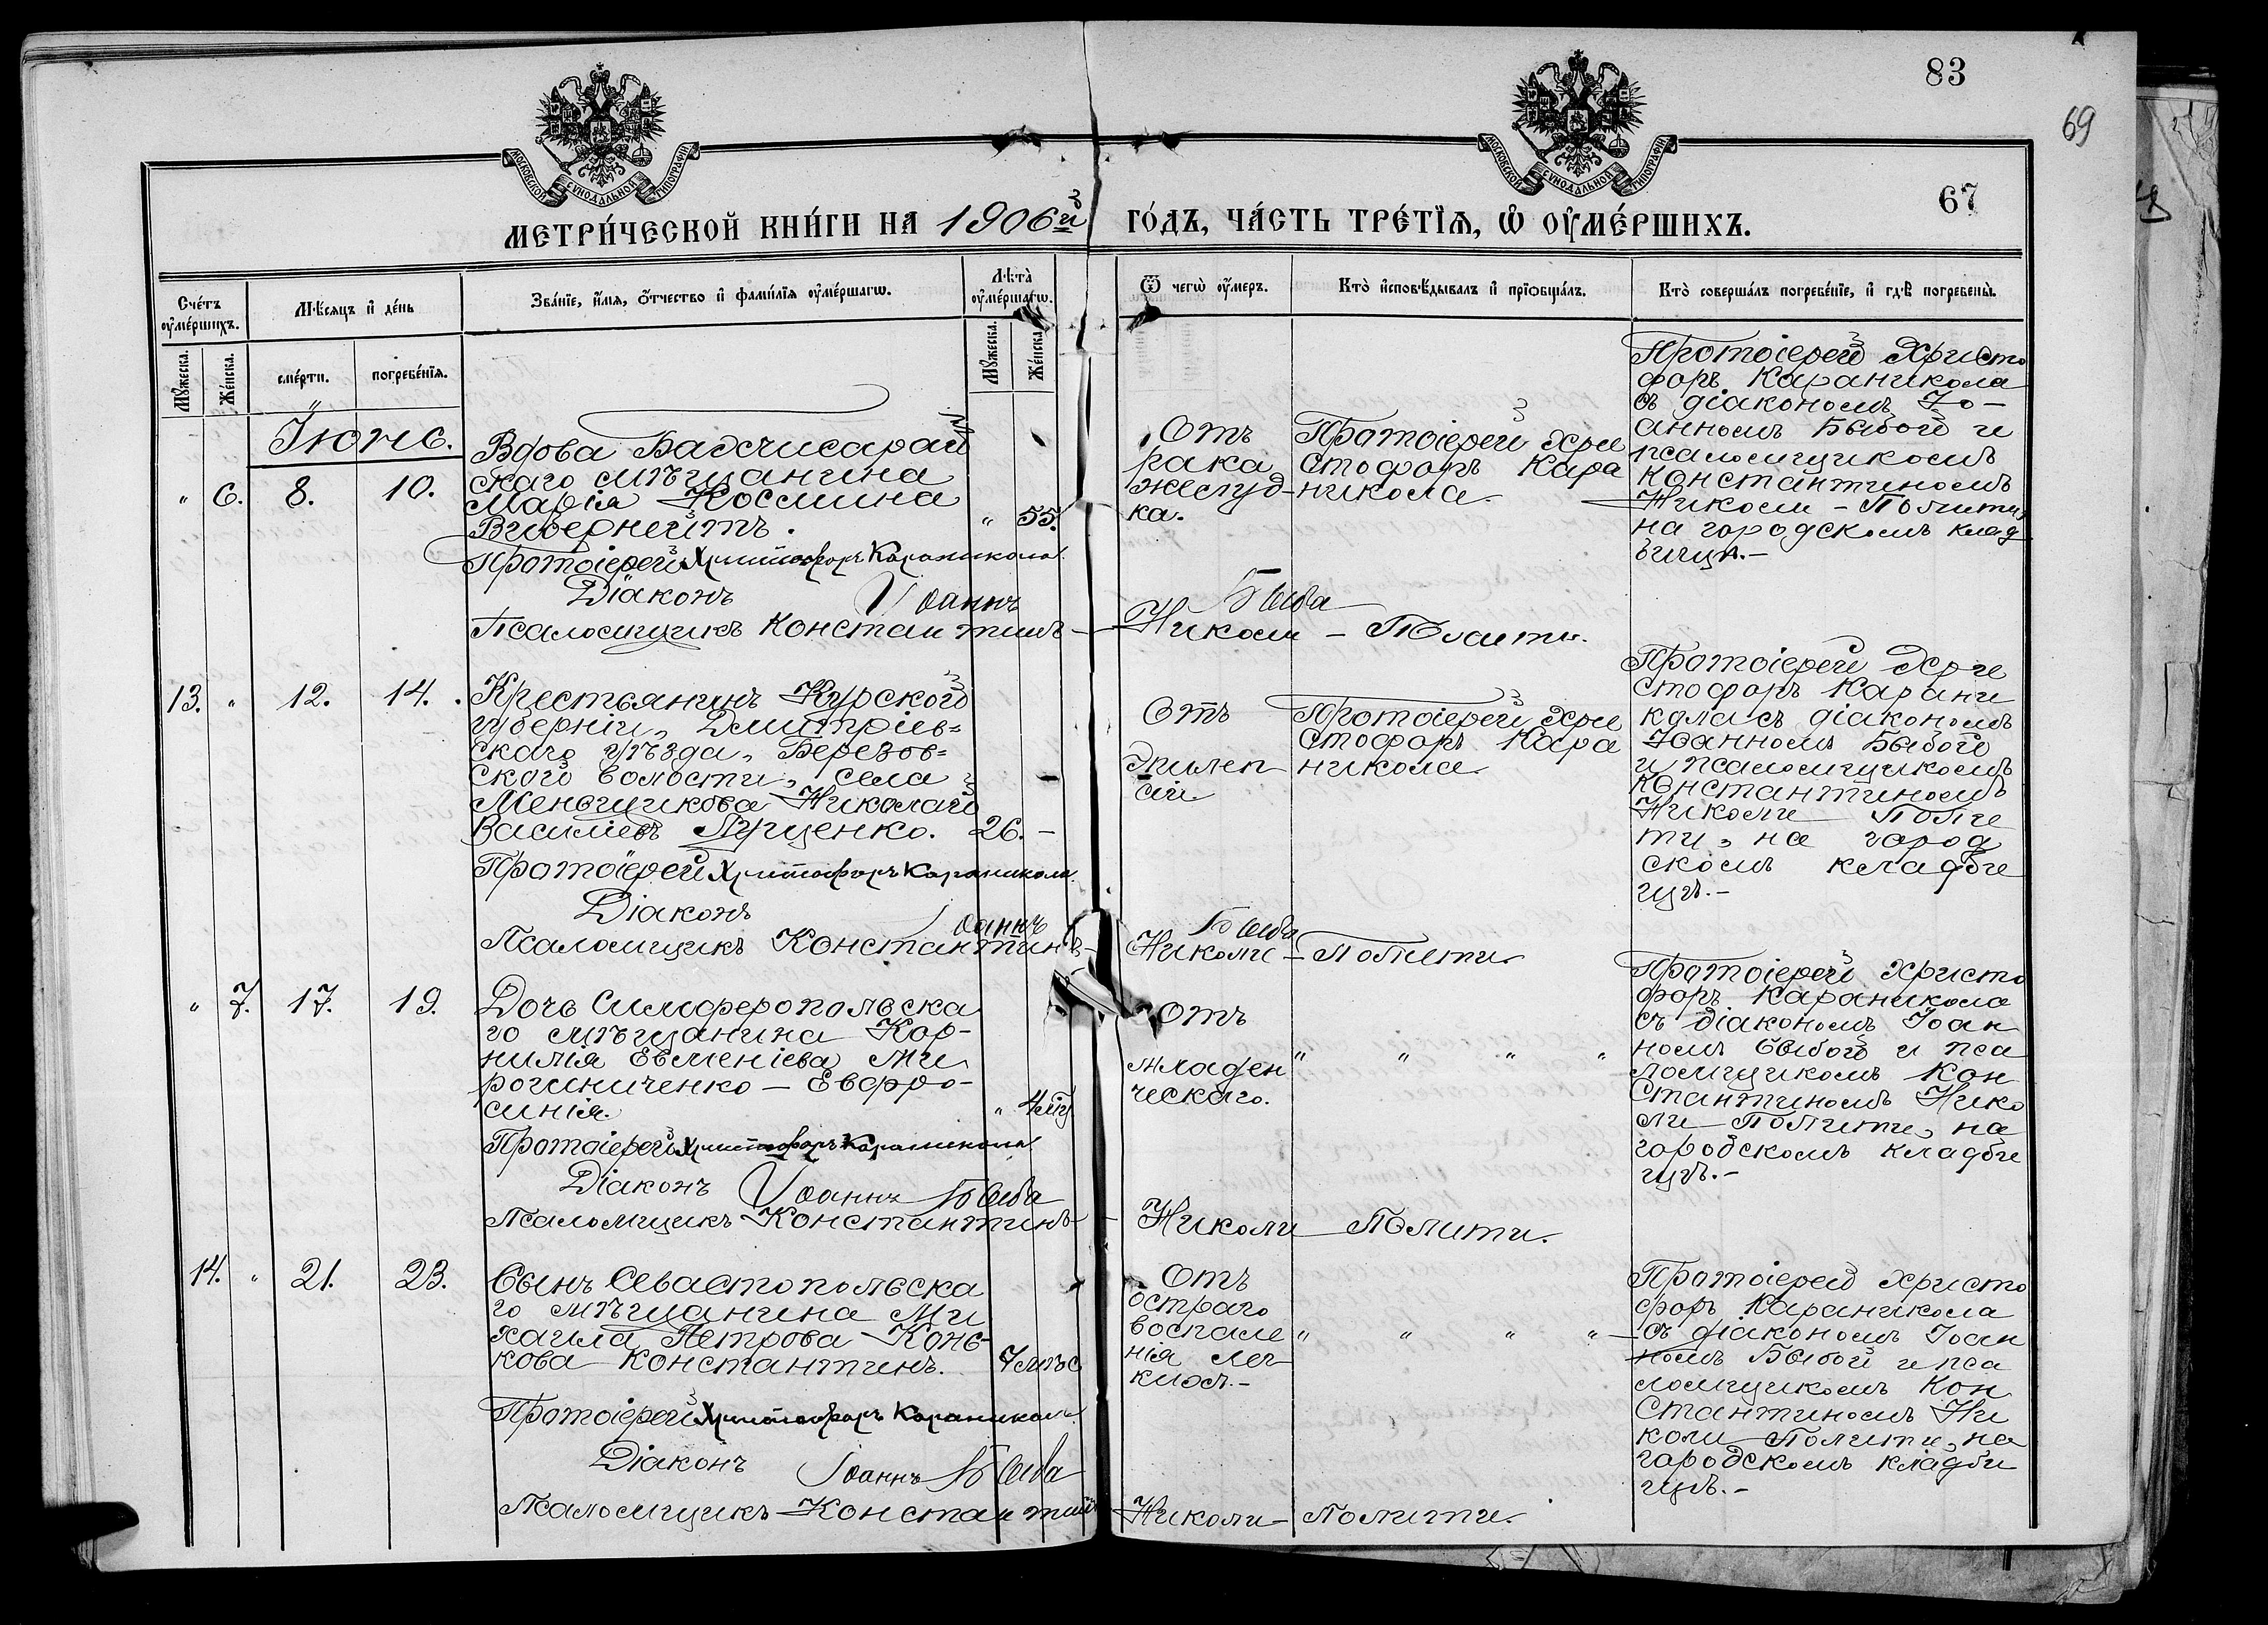 83
69
67
МОСКОВСКОЙ СѴНОДАЛЬНОЙ ТИПОГРАФІИ
МОСКОВСКОЙ СѴНОДАЛЬНОЙ ТИПОГРАФІИ
МЕТРИ́ЧЕСКОЙ КНИ́ГИ НА 1906й ГО́ДЪ, ЧА́СТЬ ТРЕ́ТІѦ, Ѡ҆ ОУ҆МЕ́РШИХЪ.
Сче́тъ оу҆ме́ршихъ.
Мѣ́сяцъ и҆ де́нь
Зва́ніе, и҆́мѧ, о҆́тчество и҆ фами́лїѧ оу҆ме́ршагѡ.
Лѣта̀ оу҆ме́ршагѡ.
Ѿ чегѡ̀ оу҆́меръ.
Кто̀ и҆сповѣ́дывалъ и҆ прїѡбща́лъ.
Кто̀ соверша́лъ погребе́нїе, и҆ гдѣ̀ погребены̀.
Мꙋ́жеска.
Же́нска.
сме́рти.
погребе́нїѧ.
Мꙋ́жеска.
Же́нска.
Іюнь.
" 6. 8. 10.
Вдова Бахчисарай
скаго мѣщанина
Марія Космина
" 55.
Отъ
рака
желуд-
ка.
Протоіерей Хри
стофоръ Кара
никола
Протоіерей Христо
форъ Караникола
съ діакономъ Іо-
анномъ Быбой и
псаломщикомъ
Константиномъ
Николи - Полити
на городскомъ клад
бищѣ.-
Протоіерей Христофоръ Караникола
Діаконъ Іоаннъ Быба
Псаломщикъ Константинъ - Николи - Полити.
13. " 12. 14.
Крестьянинъ Курской
губерніи, Дмитріев=
скаго уѣзда, Березов=
ской волости, села
Меньщикова Николай
Василіевъ Луценко.
26. -
Отъ
эпилеп
сіи
Протоіерей Хри
стофоръ Кара
никола
Протоіерей Хри
стофоръ Карани
кола съ діакономъ
Іоанномъ Быбой
и псаломщикомъ
Константиномъ
Николи Поли
ти, на город
скомъ кладби
щѣ.-
Протоіерей Христофоръ Караникола
Діаконъ Іоаннъ Быба
Псаломщикъ Константинъ - Николи - Полити
" 7. 17. 19.
Дочь Симферопольска
го мѣщанина Кор-
нилія Евменіева Ми
рошниченко - Евфро-
синія.
Отъ
младен
ческаго.
" " " "
Протоіерей Христо
форъ Караникола
съ діакономъ Іоан
номъ Быбой и пса
ломщикомъ Кон
стантиномъ Нико
ли Полити, на
городскомъ кладби
щѣ.-
Протоіерей Христофоръ Караникола
Діаконъ Іоаннъ Быба
Псаломщикъ Константинъ - Николи Полити.
14. " 21. 23.
Сынъ Севастопольска
го мѣщанина Ми
хаила Петрова Конь-
кова Константинъ.
7 мѣс
Отъ
остраго
воспале
нія лег-
кихъ.-
" " " "
Протоіерей Христо
форъ Караникола
съ діакономъ Іоан
номъ Быбой и пса
ломщикомъ Кон
стантиномъ Ни
коли Полити, на
городскомъ кладби
щѣ.-
Протоіерей Христофоръ Караникола
Діаконъ Іоаннъ Быба
Псаломщикъ Константинъ Николи - Полити.